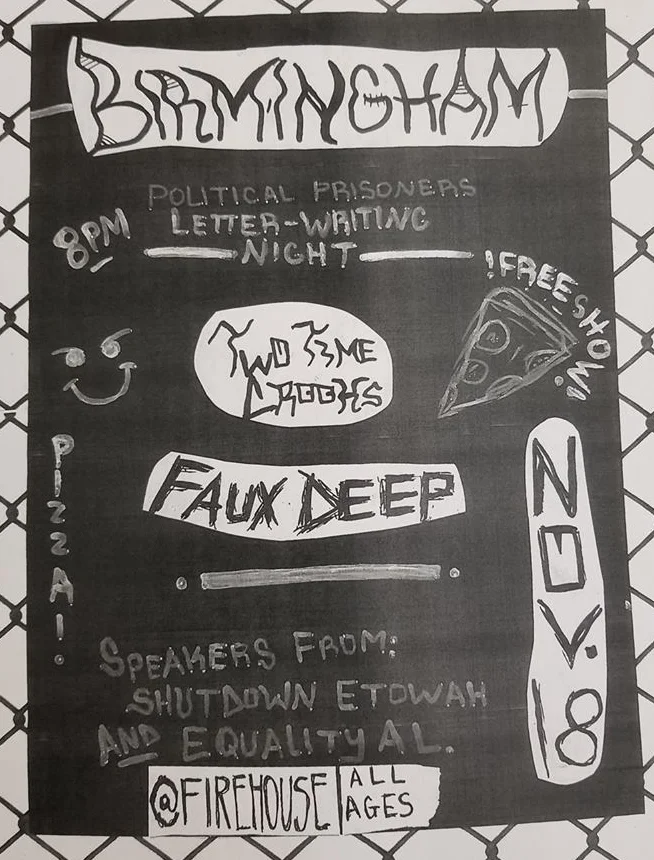 BIRMINGHAM
POLITICAL PRISONERS
LETTER-WRITING
NIGHT
8PM
!FREE SHOW!
TWO TIME
CROOKS
PIZZA!
FAUX DEEP
NOV. 18
SPEAKERS FROM:
SHUTDOWN ETOWAH
AND EQUALITY AL.
@FIREHOUSE
ALL
AGES